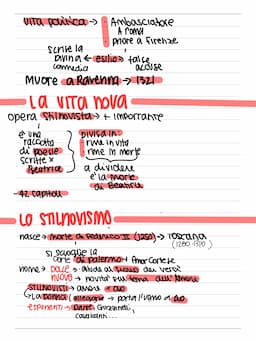 VITA POLITICA → Ambasciatore
A ROMA
priore a Firenze
scrive la
Divina ← esilio → false
commedia accuse
Muore a Ravenna → 1321
LA VITA NOVA
opera stilnovista → + importante
è una
raccolta
di poesie
scritte x
Beatrice
divisa in
rime in vita
rime in morte
a dividere
è la morte
di Beatrice
42 capitoli
LO STILNOVISMO
nasce → morte di Federico II (1250) → TOSCANA
(1280-1310)
si scioglie la
corte di palermo → Amor Cortese
nome → DOLCE → dei versi
NUOVO → novità sul tema dell'Amore
STILNOVISTI → amore → DIO
La donna → porta l'uomo a DIO
esponenti → Dante, Guinizzelli,
cavalcanti...